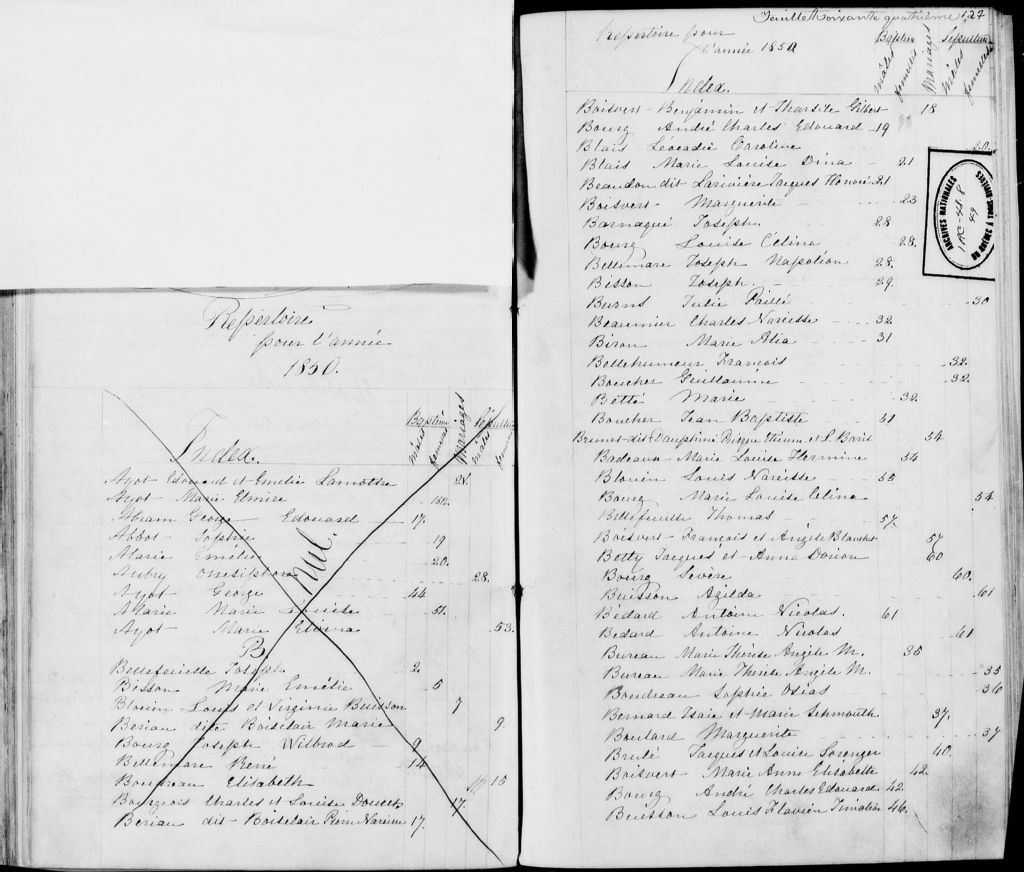 Repertoire
pour l'année
1850.
Index.
Baptême
mâles
femelles
Mariages
Sépulture
mâles
femelles
Nul.
Ayot Edouard et Emélie Lamothe 24.
Ayot Marie Elmire 182.
Abram George Edouard 17.
Abbot Sophie 19
Marie Emélie 20.
Aubry Onésiphore 28.
Ayot George 44
Marie Louise 51.
Ayot Marie Elvina 53.
B
Bellefeuille Joseph 2.
Bésson Marie Emélie 5
Blouin Louis et Virginie Buisson 7
Beriau dit Boisclair Marie 9.
Bourg Joseph Wilbrod 9
Bellemare René 14
Boudreau Elisabeth 15
Bourgeois Charles et Louise Doucet 17.
Beriau dit Boisclair Pierre Narcisse 17.
Feuille soixante quatrième 127
Repertoire pour
l'année 1850
Index.
Baptême
mâles
femelles
Mariages
Sépulture
mâles
femelles
Boisvert Benjamin et Tharsite Gilbert 18
Bourg André Charles Edouard 19
Blais Léocadie Caroline 20.
Blais Marie Louise Dina 21
Beaudon dit Larivière Jacques Honoré 21
Boisvert Marguerite 23
Barnaqué Joseph. 28
Bourg Louise Célina 28.
Bellemare Joseph Napoléon 28.
Bésson Joseph. 29.
Burns Julie Paillé 30
Beaumier Charles Narcisse 32.
Biron Marie Alia 31
Bellehumeur François 32.
Boucher Guillaume 32.
Betté Marie 32.
Boucher Jean Baptiste 51
Brunet dit Dauphiné Etienne et L. Baril 54
Badeaux Marie Louise Hermine 54
Blouin Louis Narcisse 55
Bourg Marie Louise Celina 54
Bellefeuille Thomas 57.
Boisvert François et Angèle Blanchet 57
Betty Jacques et Anna 60
Bourg Sevère 60.
Buisson Azilda 61
Bédard Antoine Nicolas. 61
Bedard Antoine Nicolas 61
Bureau Marie Thérèse Angèle M. 35
Bureau Marie Thérèse Angèle M. 35
Boudreau Sophie Osias 36
Bernard Isaie et Marie 37.
Boulard Marguerite 37
Brulé Jacques et Louise Lorenger 40.
Boisvert Marie Anne Elisabette 42.
Bourg André Charles Edouard 42
Buisson Louis Flavien Timoléon 46.
ARCHIVES NATIONALES
DU QUÉBEC À TROIS-RIVIÈRES